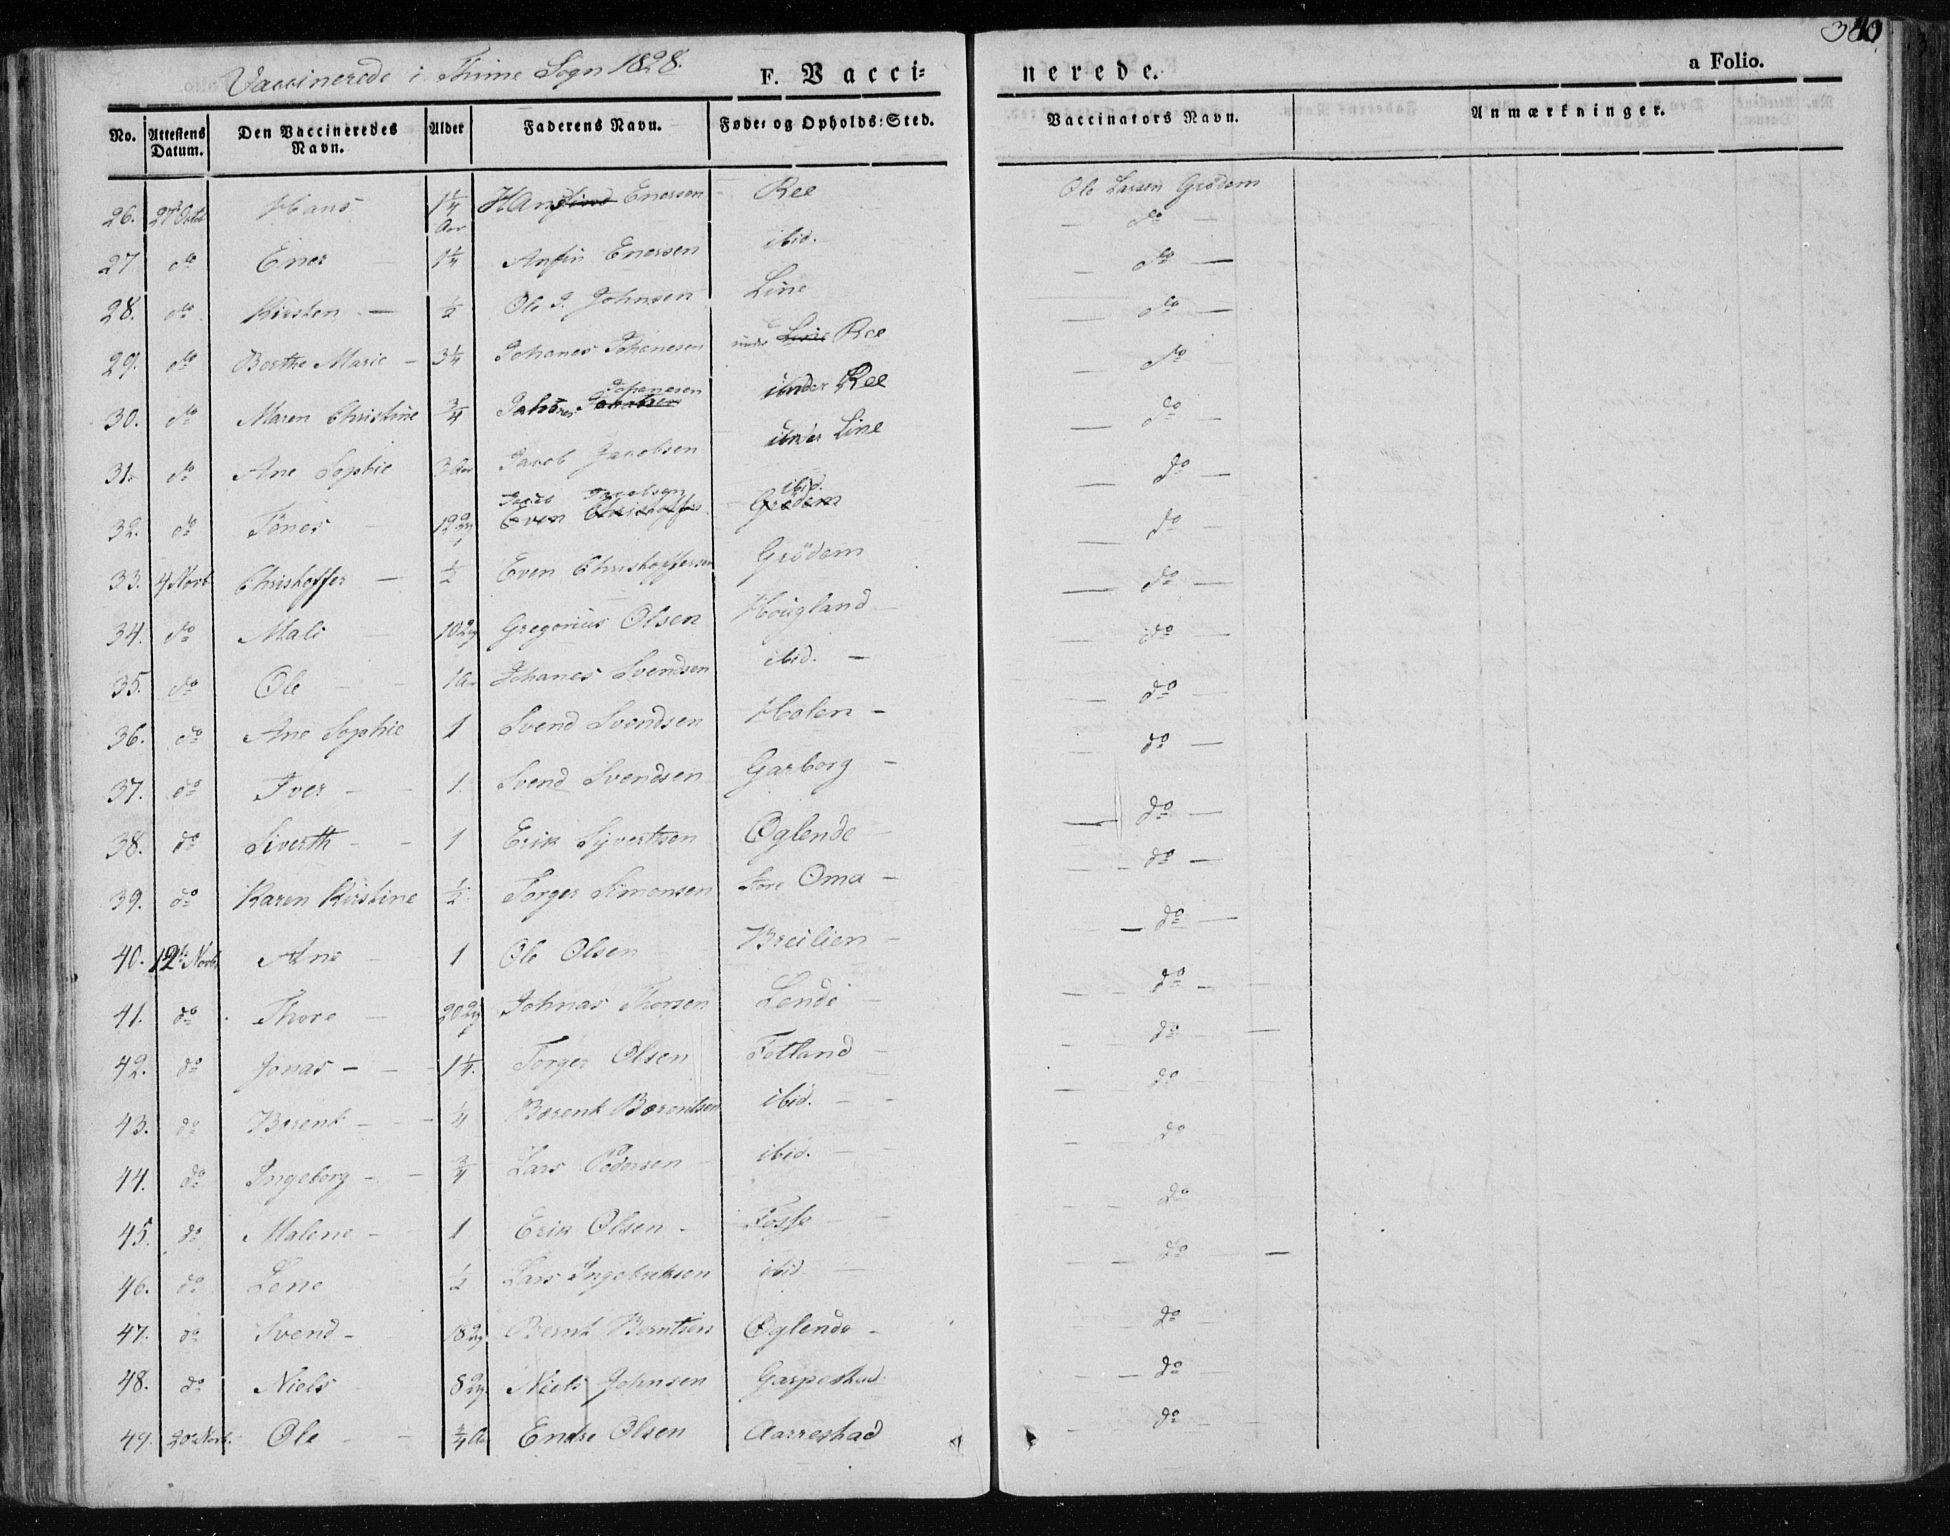 Vaccinerede i Thime Sogn 1828.
F. Vacci=
nerede.
a Folio.
No. Attestens Datum. Den Vaccineredes Navn. Alder Faderens Navn. Føde= og Opholds=Sted. Vaccinators Navn. Anmærkninger.
26. 27 Octb Hans 1¼ Aar Enersen Ree Ole Larsen Grödem
do
27 do Ener 1¼ Anfin Enersen ibid. do
28. do Kirsten ½ Ole J. Johnsen Line do
29. do Berthe Marie 3¼ Johanes Johanesen under Line Ree do
30. do Maren Christine ¾ Johanesen under Ree do
31. do Ane Sophie 3 Aar Jacob Jacobsen under Line do
32. do Tönes 12 Jacobsen Even Christoffer ibid. Grödem do
33. 4 Novb Christoffer ½ Even Christoffersen Grödem do
34. do Mali 10 Gregorius Olsen Höigland do
35. do Ole 1 Aar Johanes Svendsen ibid. do
36. do Ane Sophie 1 Svend Svendsen Holen do
37. do Iver 1 Svend Svendsen Garborg do
38. do Siverth 1 Erik Syvertsen Øglende do
39. do Karen Kirstine ½ Torger Simonsen Store Oma do
40. 12te Novb. Ane 1 Ole Olsen Breilien do
41. do Thore 20 Johnas Thorsen Lende do
42. do Jonas 1¼ Torger Olsen Fotland do
43. do Berent ¼ Berent Berentsen ibid. do
44. do Ingeborg ¾ Lars Pedersen ibid. do
45. do Malene 1 Erik Olsen Fosse do
46. do Lene ½ Lars Ingebretsen ibid do
47. do Svend 18 Bernt Berntsen Øglende do
48. do Niels 8 Niels Johnsen Garpestad do
49. 20 Novb. Ole ¾ Endre Olsen Aarrestad do